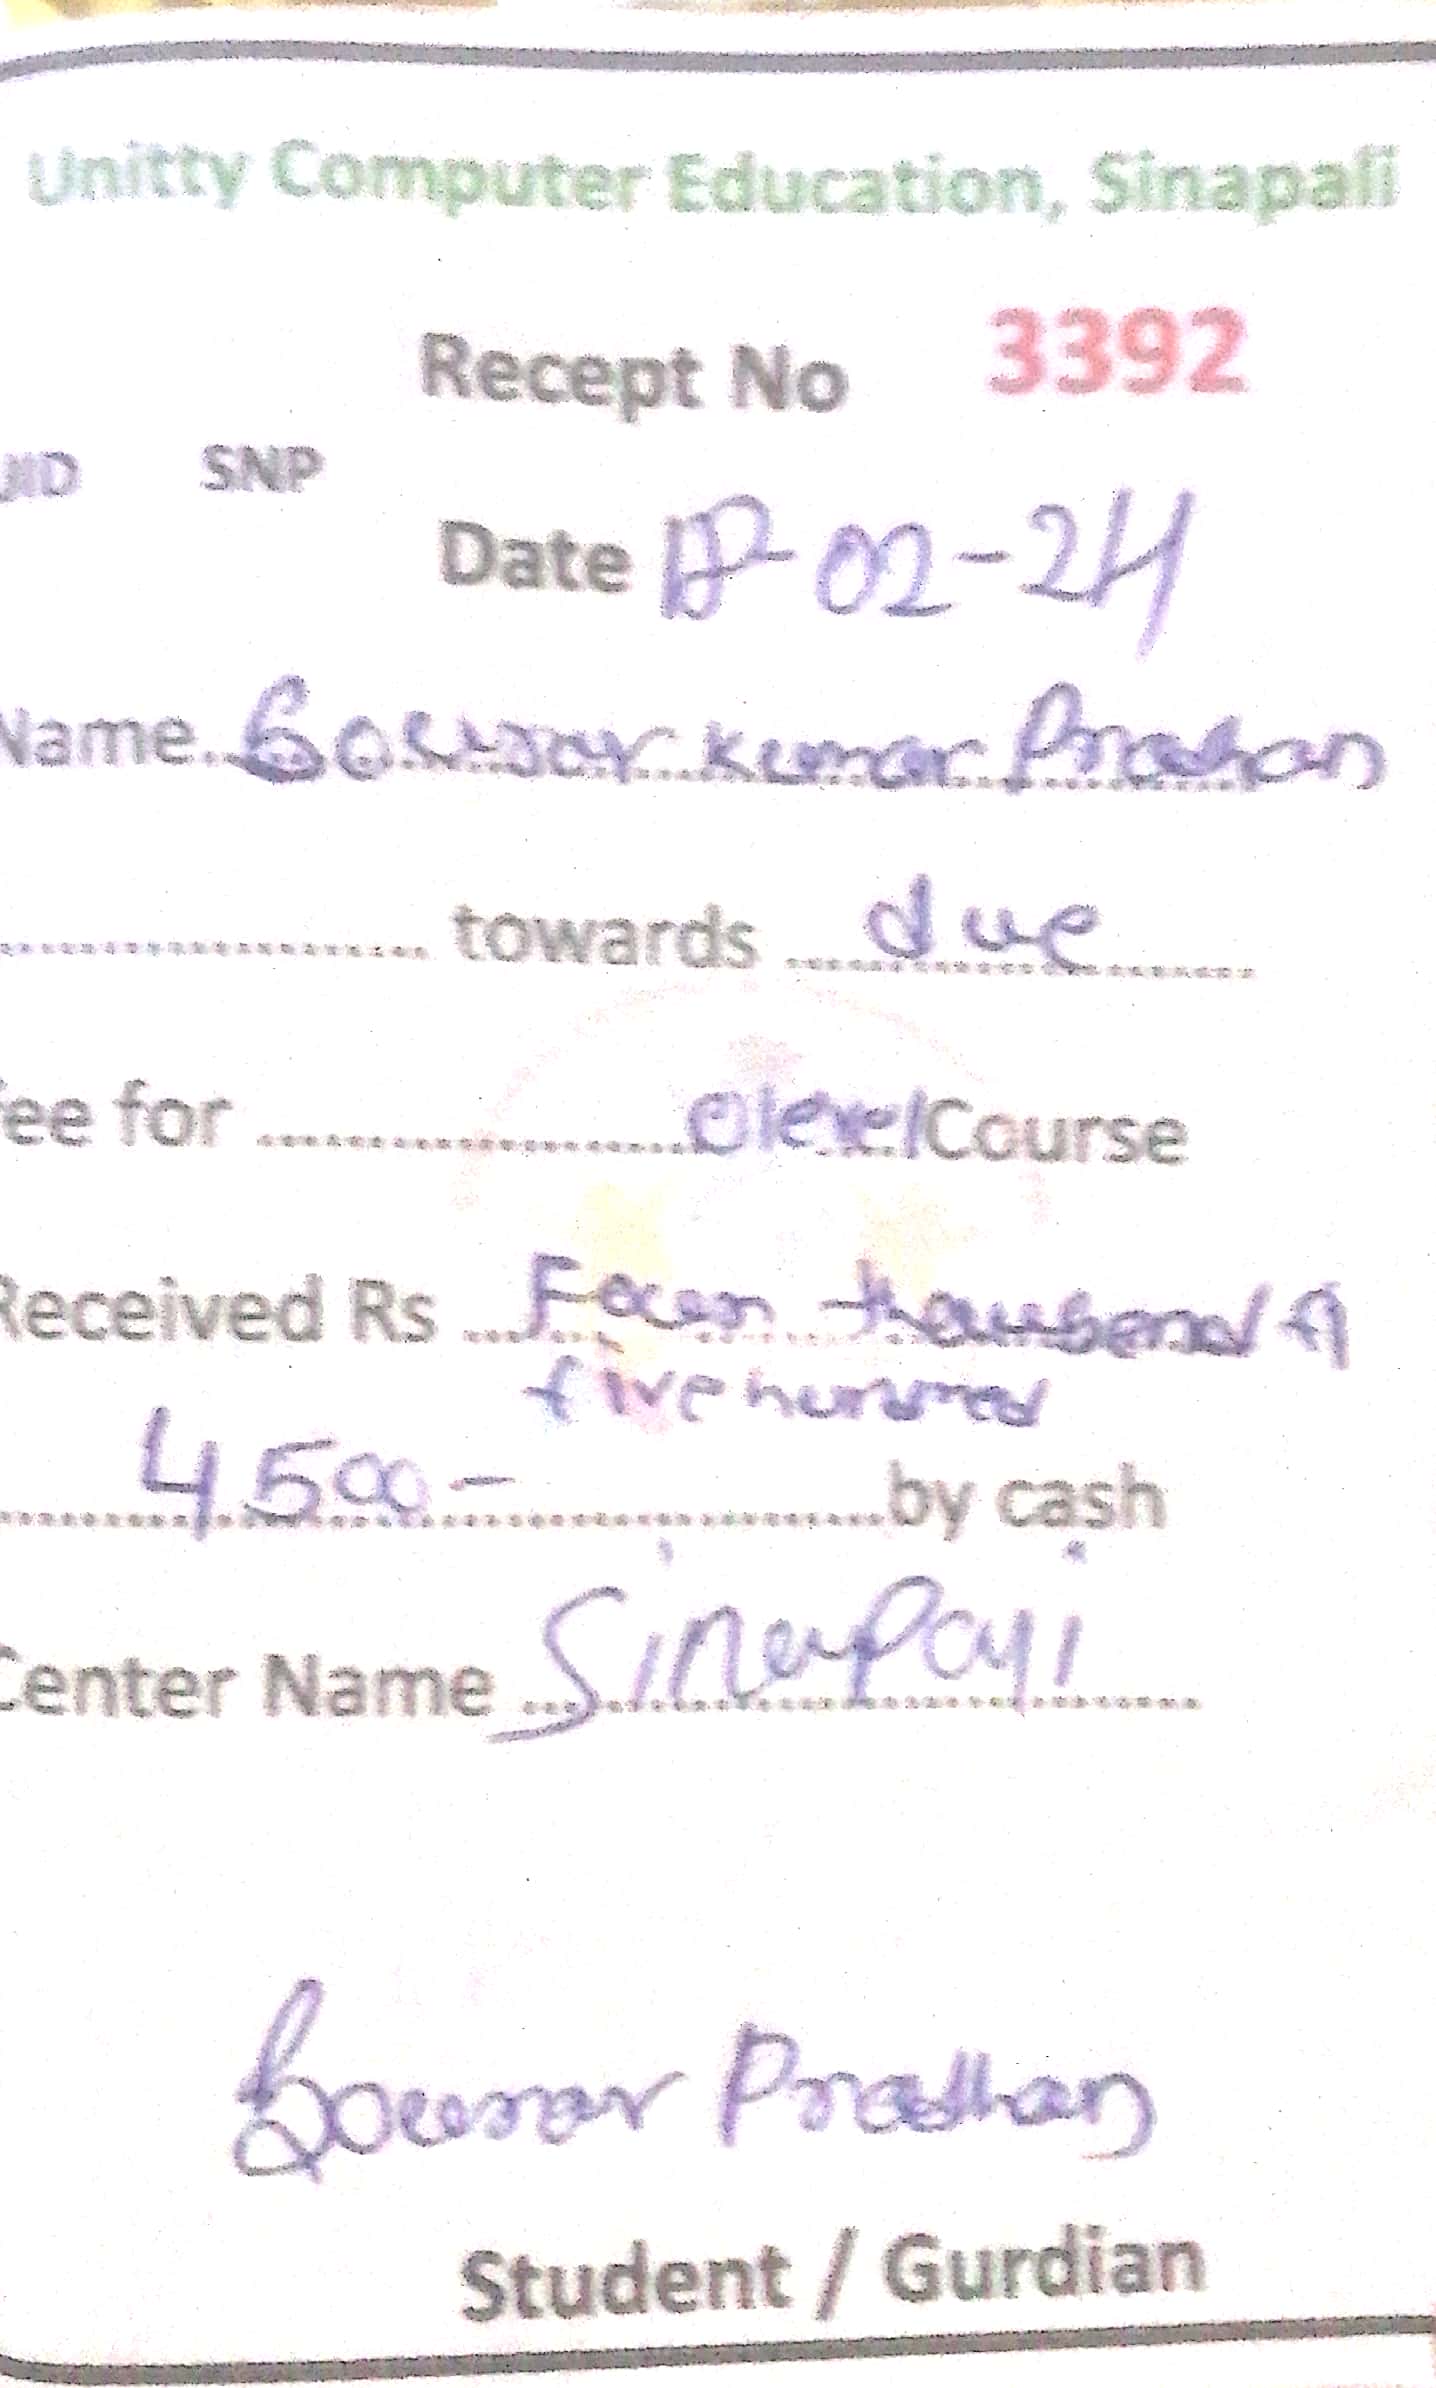 Unitty Computer Education, Sinapali
Recept No 3392
UID SNP
Date 02-24
Name Kumar Pradhan
towards due
fee for O level Course
Received Rs Four thousand
five hundred
4500- by cash
Center Name Sinapali
Pradhan
Student / Gurdian